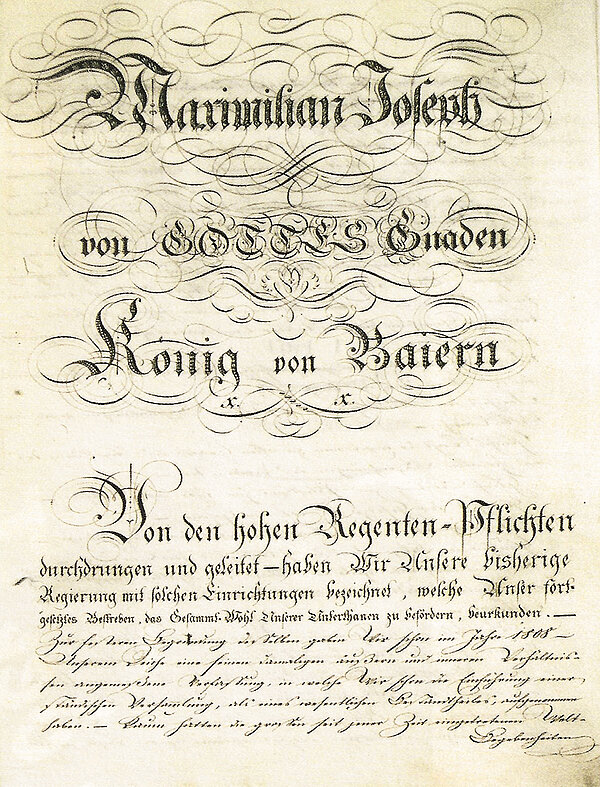 Maximilian Joseph
von GOTTES Gnaden
König von Baiern
x. x.
Von den hohen Regenten-Pflichten
durchdrungen und geleitet – haben Wir Unsere bisherige
Regierung mit solchen Einrichtungen bezeichnet, welche Unser fort-
gesetztes Bestreben, das Gesammt-Wohl Unserer Unterthanen zu befördern, beurkunden. –
Zur festeren Begründung desselben gaben Wir schon im Jahre 1808 –
Unserem Reiche eine seinen damaligen äussern und inneren Verhältnis-
sen angemessene Verfassung, in welche Wir schon die Einführung einer
ständischen Versamlung, als eines wesentlichen Bestandtheiles, aufgenommen
haben. – Kaum hatten die grossen seit jener Zeit eingetretenen Welt-
Begebenheiten